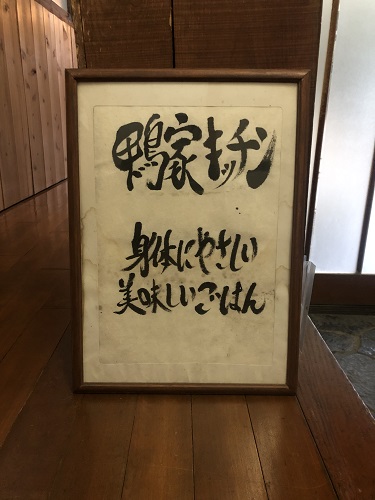 鴨家キッチン
身体にやさしい
美味しいごはん